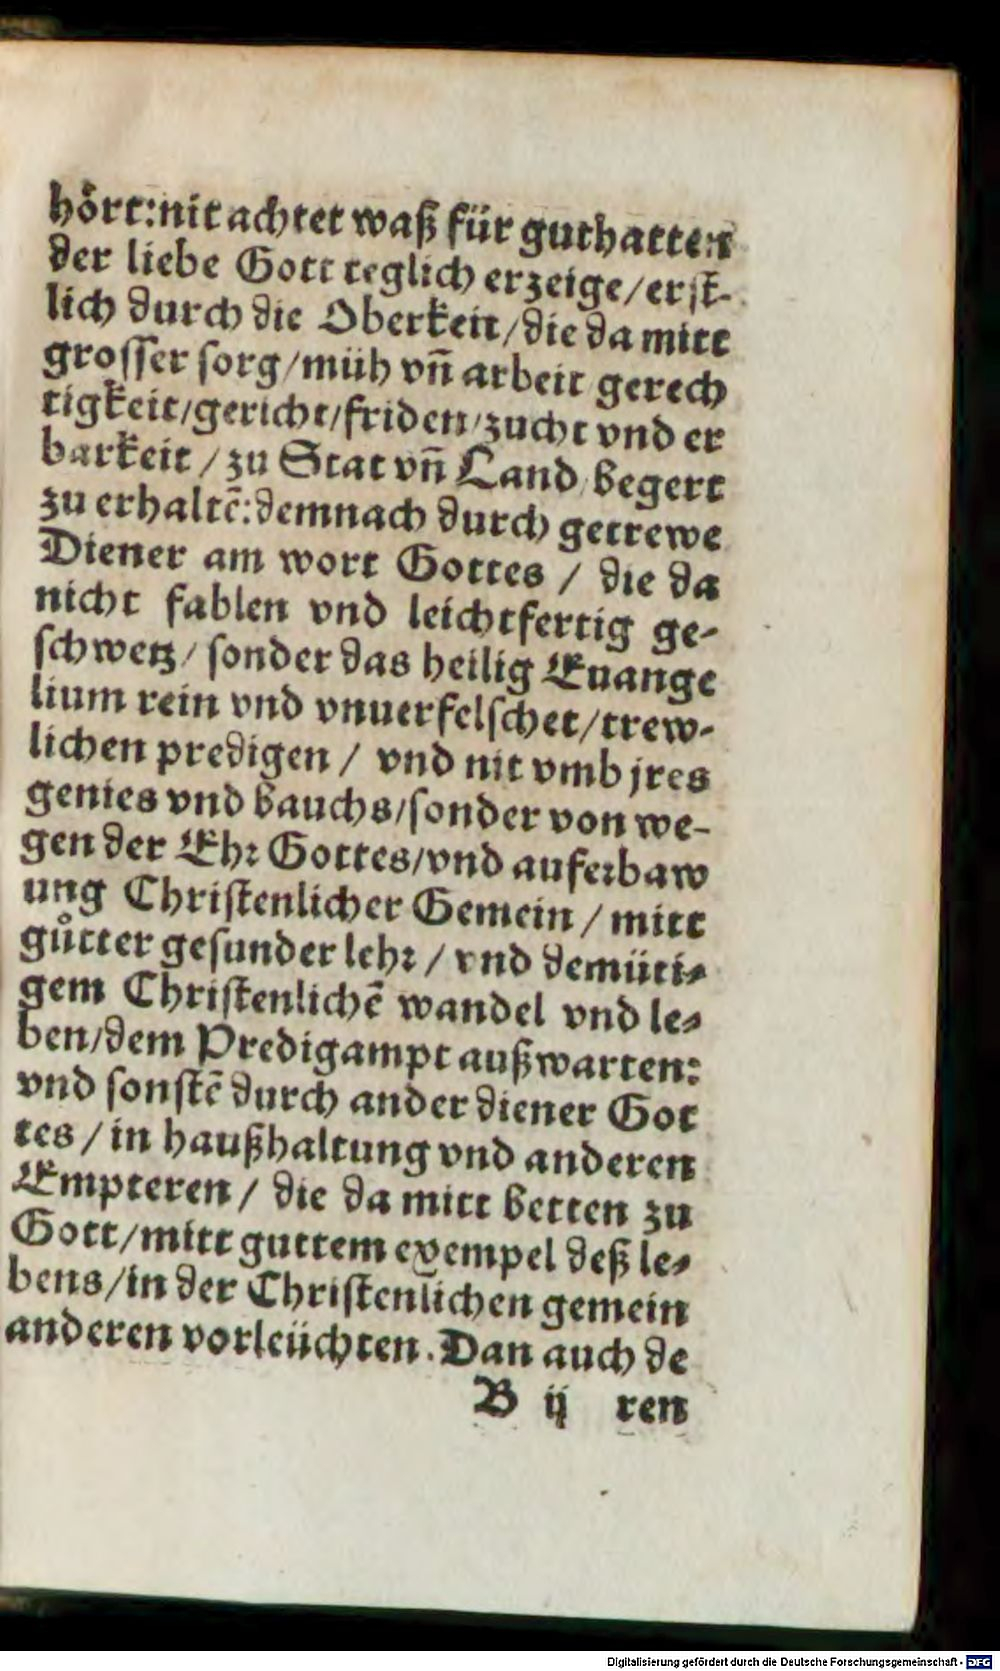 hört: nit achtet waß für guthatten
der liebe Gott teglich erzeige / erst-
lich durch die Oberkeit / die da mitt
grosser sorg / müh vn̄ arbeit gerech
tigkeit / gericht / friden / zucht vnd er
barkeit / zu Stat vn̄ Land begert
zu erhaltē: demnach durch getrewe
Diener am wort Gottes / die da
nicht fablen vnd leichtfertig ge-
schwetz / sonder das heilig Euange
lium rein vnd vnuerfelschet / trew-
lichen predigen / vnd nit vmb jres
genies vnd bauchs / sonder von we-
gen der Ehr Gottes / vnd auferbaw
ung Christenlicher Gemein / mitt
gůtter gesunder lehr / vnd demüti-
gem Christenlichē wandel vnd le-
ben / dem Predigampt außwarten:
vnd sonstē durch ander diener Got
tes / in haußhaltung vnd anderen
Empteren / die da mitt betten zu
Gott / mitt guttem exempel deß le-
bens / in der Christenlichen gemein
anderen vorleüchten. Dan auch de
B ij ren
Digitalisierung gefördert durch die Deutsche Forschungsgemeinschaft - DFG